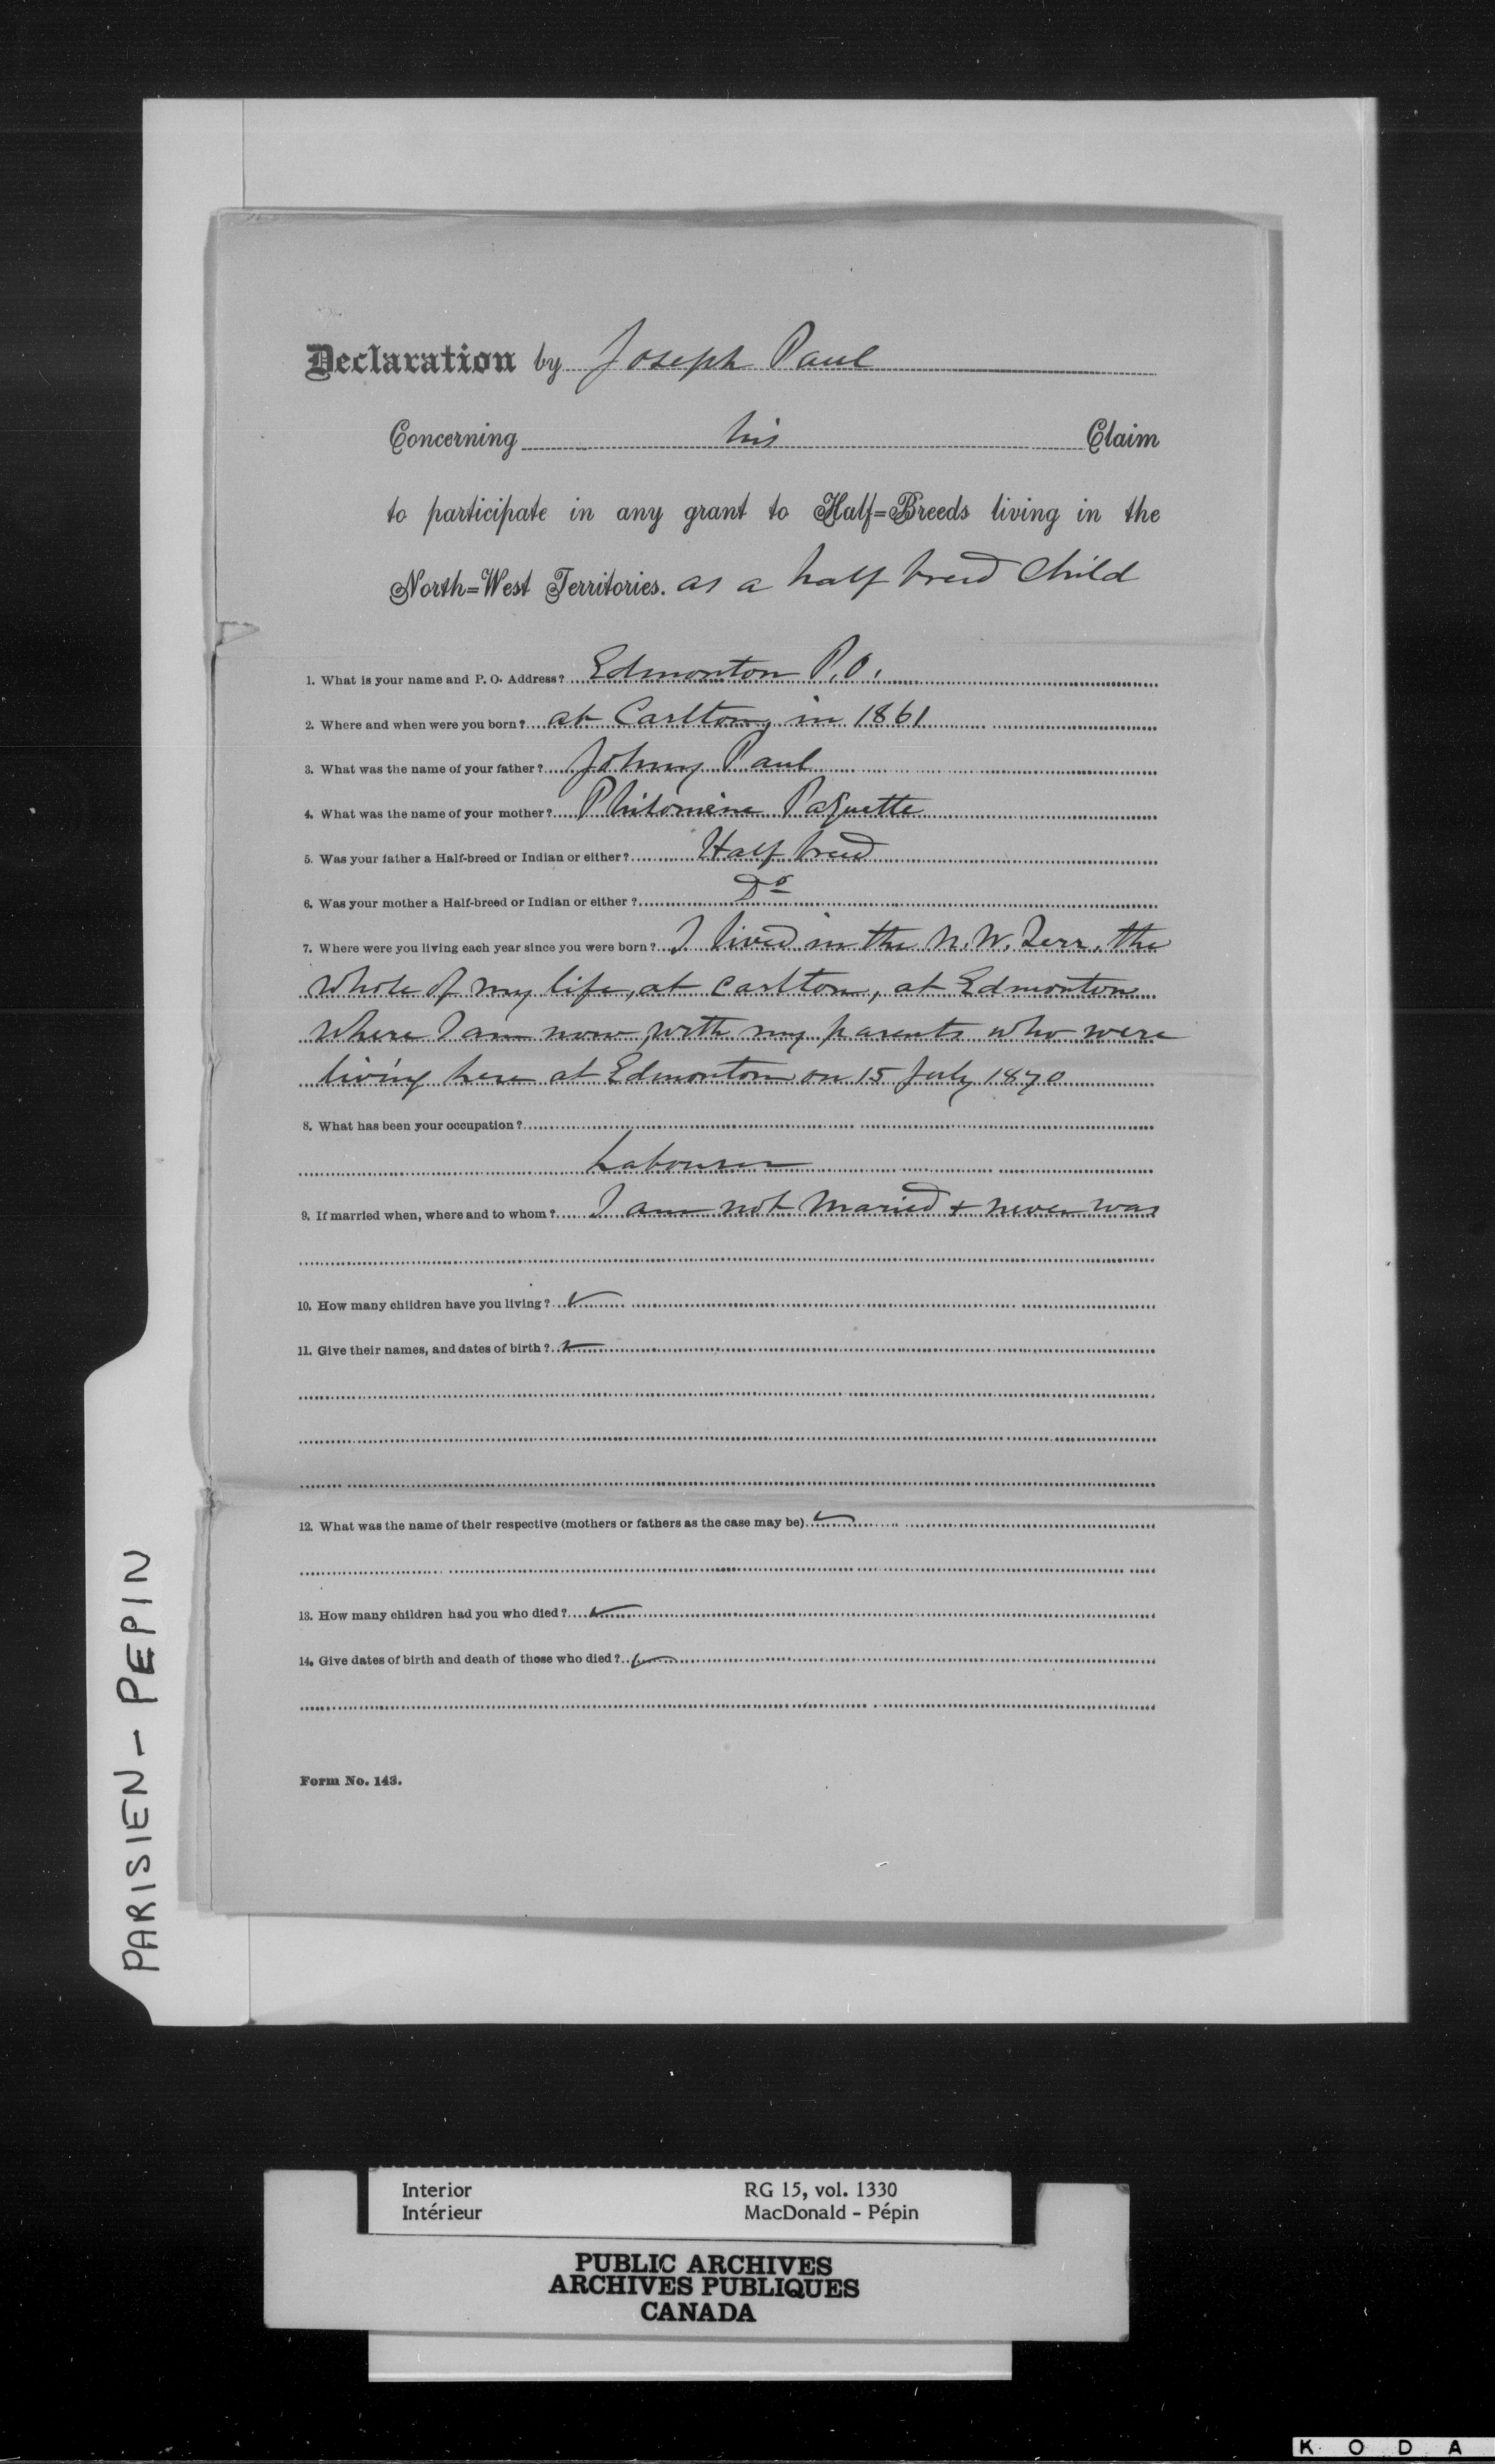 Declaration by Joseph Paul
Concerning his Claim
to participate in any grant to Half-Breeds living in the
North-West Territories. as a half breed Child
1. What is your name and P. O. Address? Edmonton P.O.
2. Where and when were you born? at Carlton, in 1861
3. What was the name of your father? Johny Paul
4. What was the name of your mother? Philomène Paquette
5. Was your father a Half-breed or Indian or either? Half breed
6. Was your mother a Half-breed or Indian or either? Do
7. Where were you living each year since you were born? I lived in the N. W. Terr. the
whole of my life, at Carlton, at Edmonton
where I am now, with my parents who were
living here at Edmonton on 15 July 1870
8. What has been your occupation?
Labourer
9. If married when, where and to whom? I am not Maried & never was
10. How many children have you living?
11. Give their names, and dates of birth?
12. What was the name of their respective (mothers or fathers as the case may be)
13. How many children had you who died?
14. Give dates of birth and death of those who died?
Form No. 143.
PARISIEN - PEPIN
Interior RG 15, vol. 1330
Intérieur MacDonald - Pépin
PUBLIC ARCHIVES
ARCHIVES PUBLIQUES
CANADA
K O D A